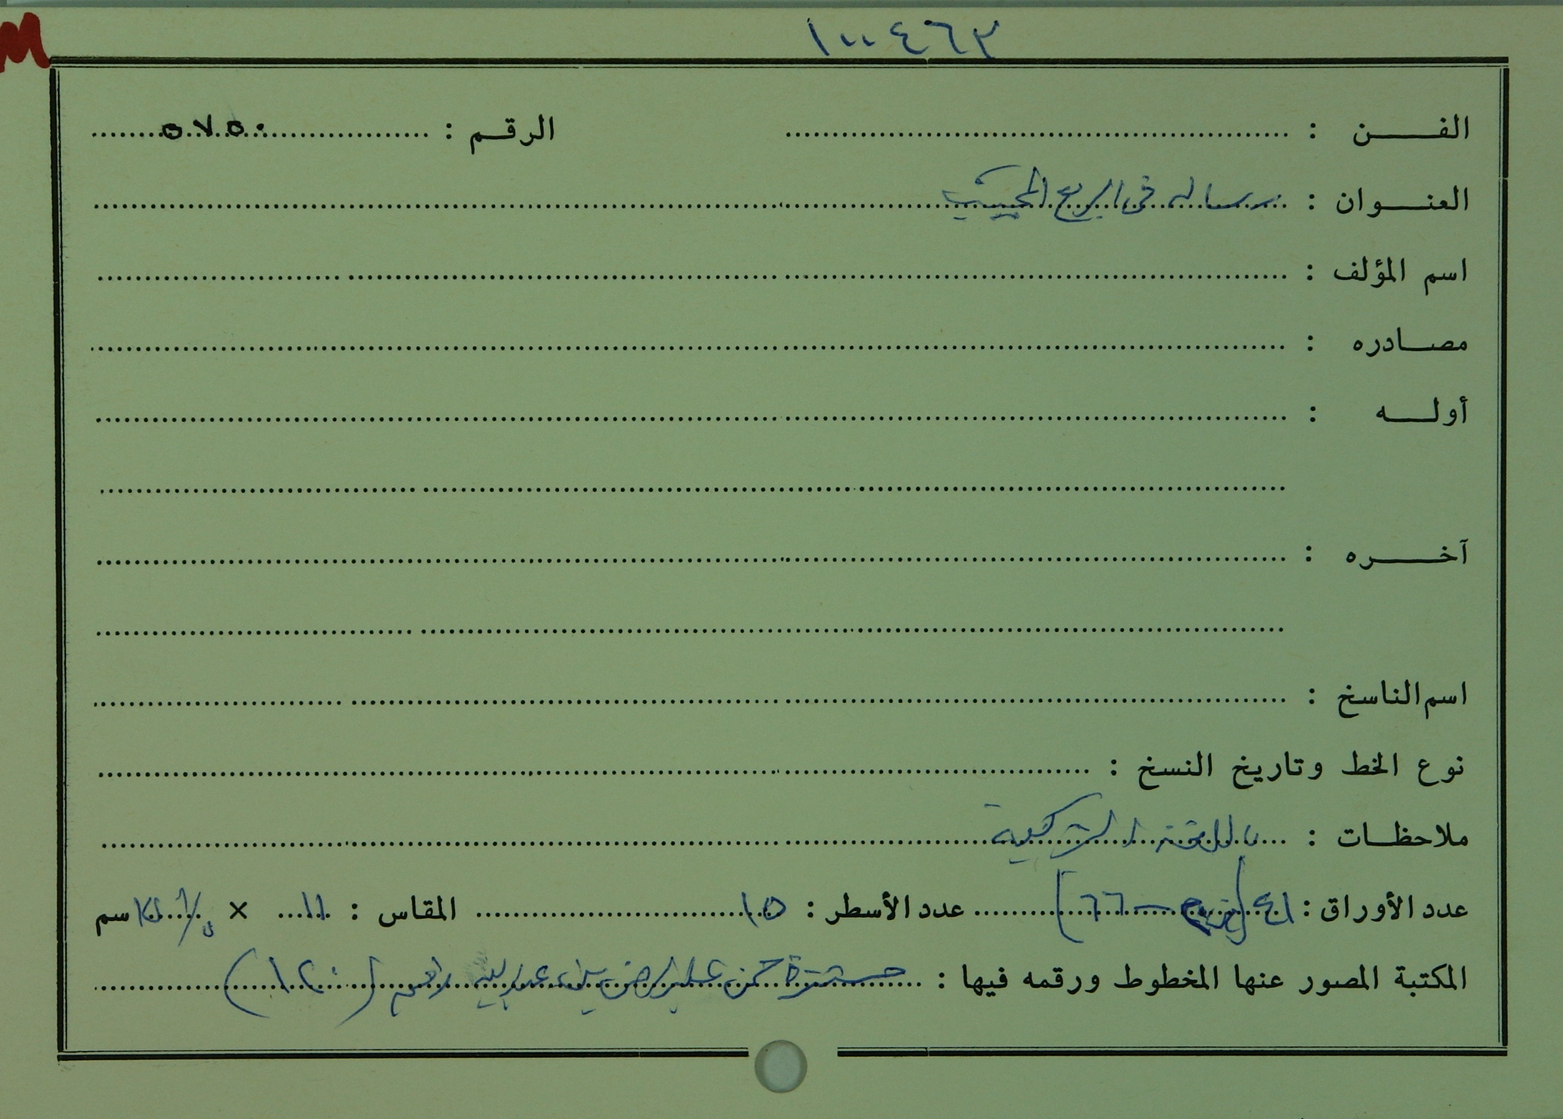 M
١٠٠٤٦٣
الفن : الرقم : ٥٧٥٠
العنوان : رسالة في الربع المجيب
اسم المؤلف :
مصادره :
أوله :
آخره :
اسم الناسخ :
نوع الخط وتاريخ النسخ :
ملاحظات : باللغة التركية
عدد الأوراق : ١٤ عدد الأسطر : ١٥ المقاس : ١١ × سم
المكتبة المصور عنها المخطوط ورقمه فيها : رقم (١٢٠)